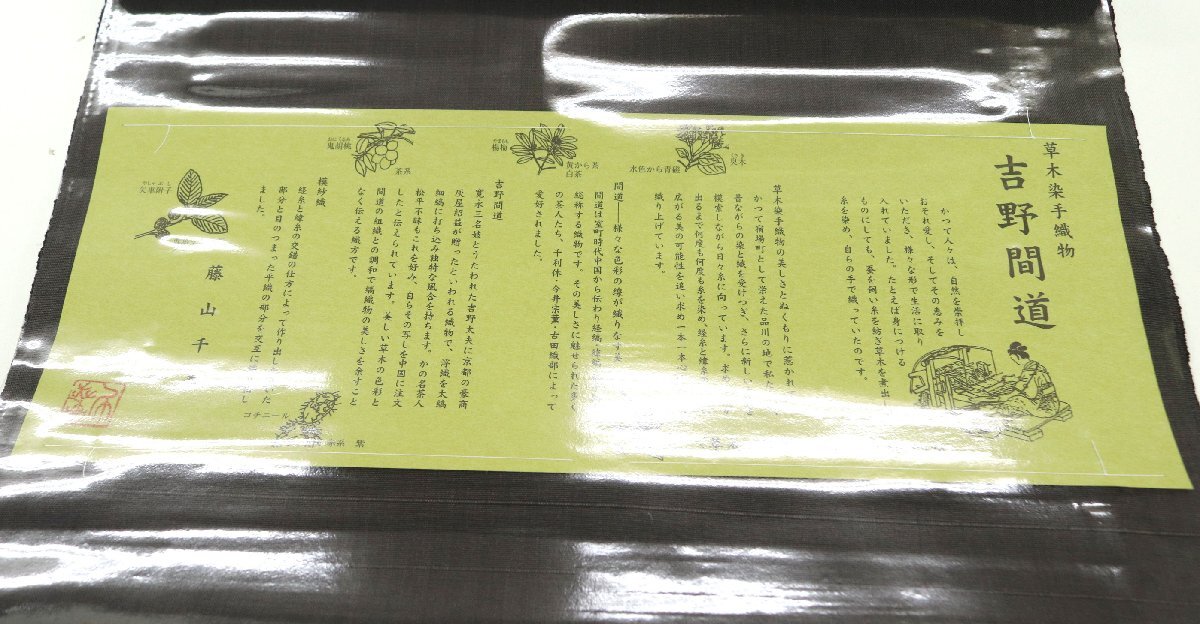 草木染手織物
吉野間道
かつて人々は、自然を崇拝し
おそれ愛し、そしてその恵みを
いただき、様々な形で生活に取り
入れていました。たとえば身につける
ものにしても、蚕を飼い糸を紡ぎ草木を煮出し
糸を染め、自らの手で織っていたのです。
草木染手織物の美しさとぬくもりに惹かれ
かつて宿場町として栄えた品川の地で私た
昔ながらの染と織を受けつぎ、さらに新しい
模索しながら日々糸に向っています。求め
出るまで何度も何度も糸を染め、経糸と緯糸
広がる美の可能性を追い求め一本一本心
織り上げています。
間道――様々な色彩の線が織りなす美
間道は室町時代中国から伝わり経縞
総称する織物です。その美しさに魅せられた多く
の茶人たち、千利休・今井宗薫・古田織部によって
愛好されました。
吉野間道
寛永三名妓とうたわれた吉野太夫に京都の豪商
灰屋紹益が贈ったといわれる織物で、浮織を太縞
細縞に打ち込み独特な風合を持ちます。かの名茶人
松平不昧もこれを好み、自らその写しを中国に注文
したと伝えられています。美しい草木の色彩と
間道の組織との調和で縞織物の美しさを余すこと
なく伝える織方です。
模紗織
経糸と緯糸の交錯の仕方によって作り出し
部分と目のつまった平織の部分を交互に
ました。
藤山千
くさぎ
臭木
水色から青磁
やまもも
楊梅
黄から茶
白茶
おにくるみ
鬼胡桃
茶系
やしゃぶし
矢車附子
コチニール
紫